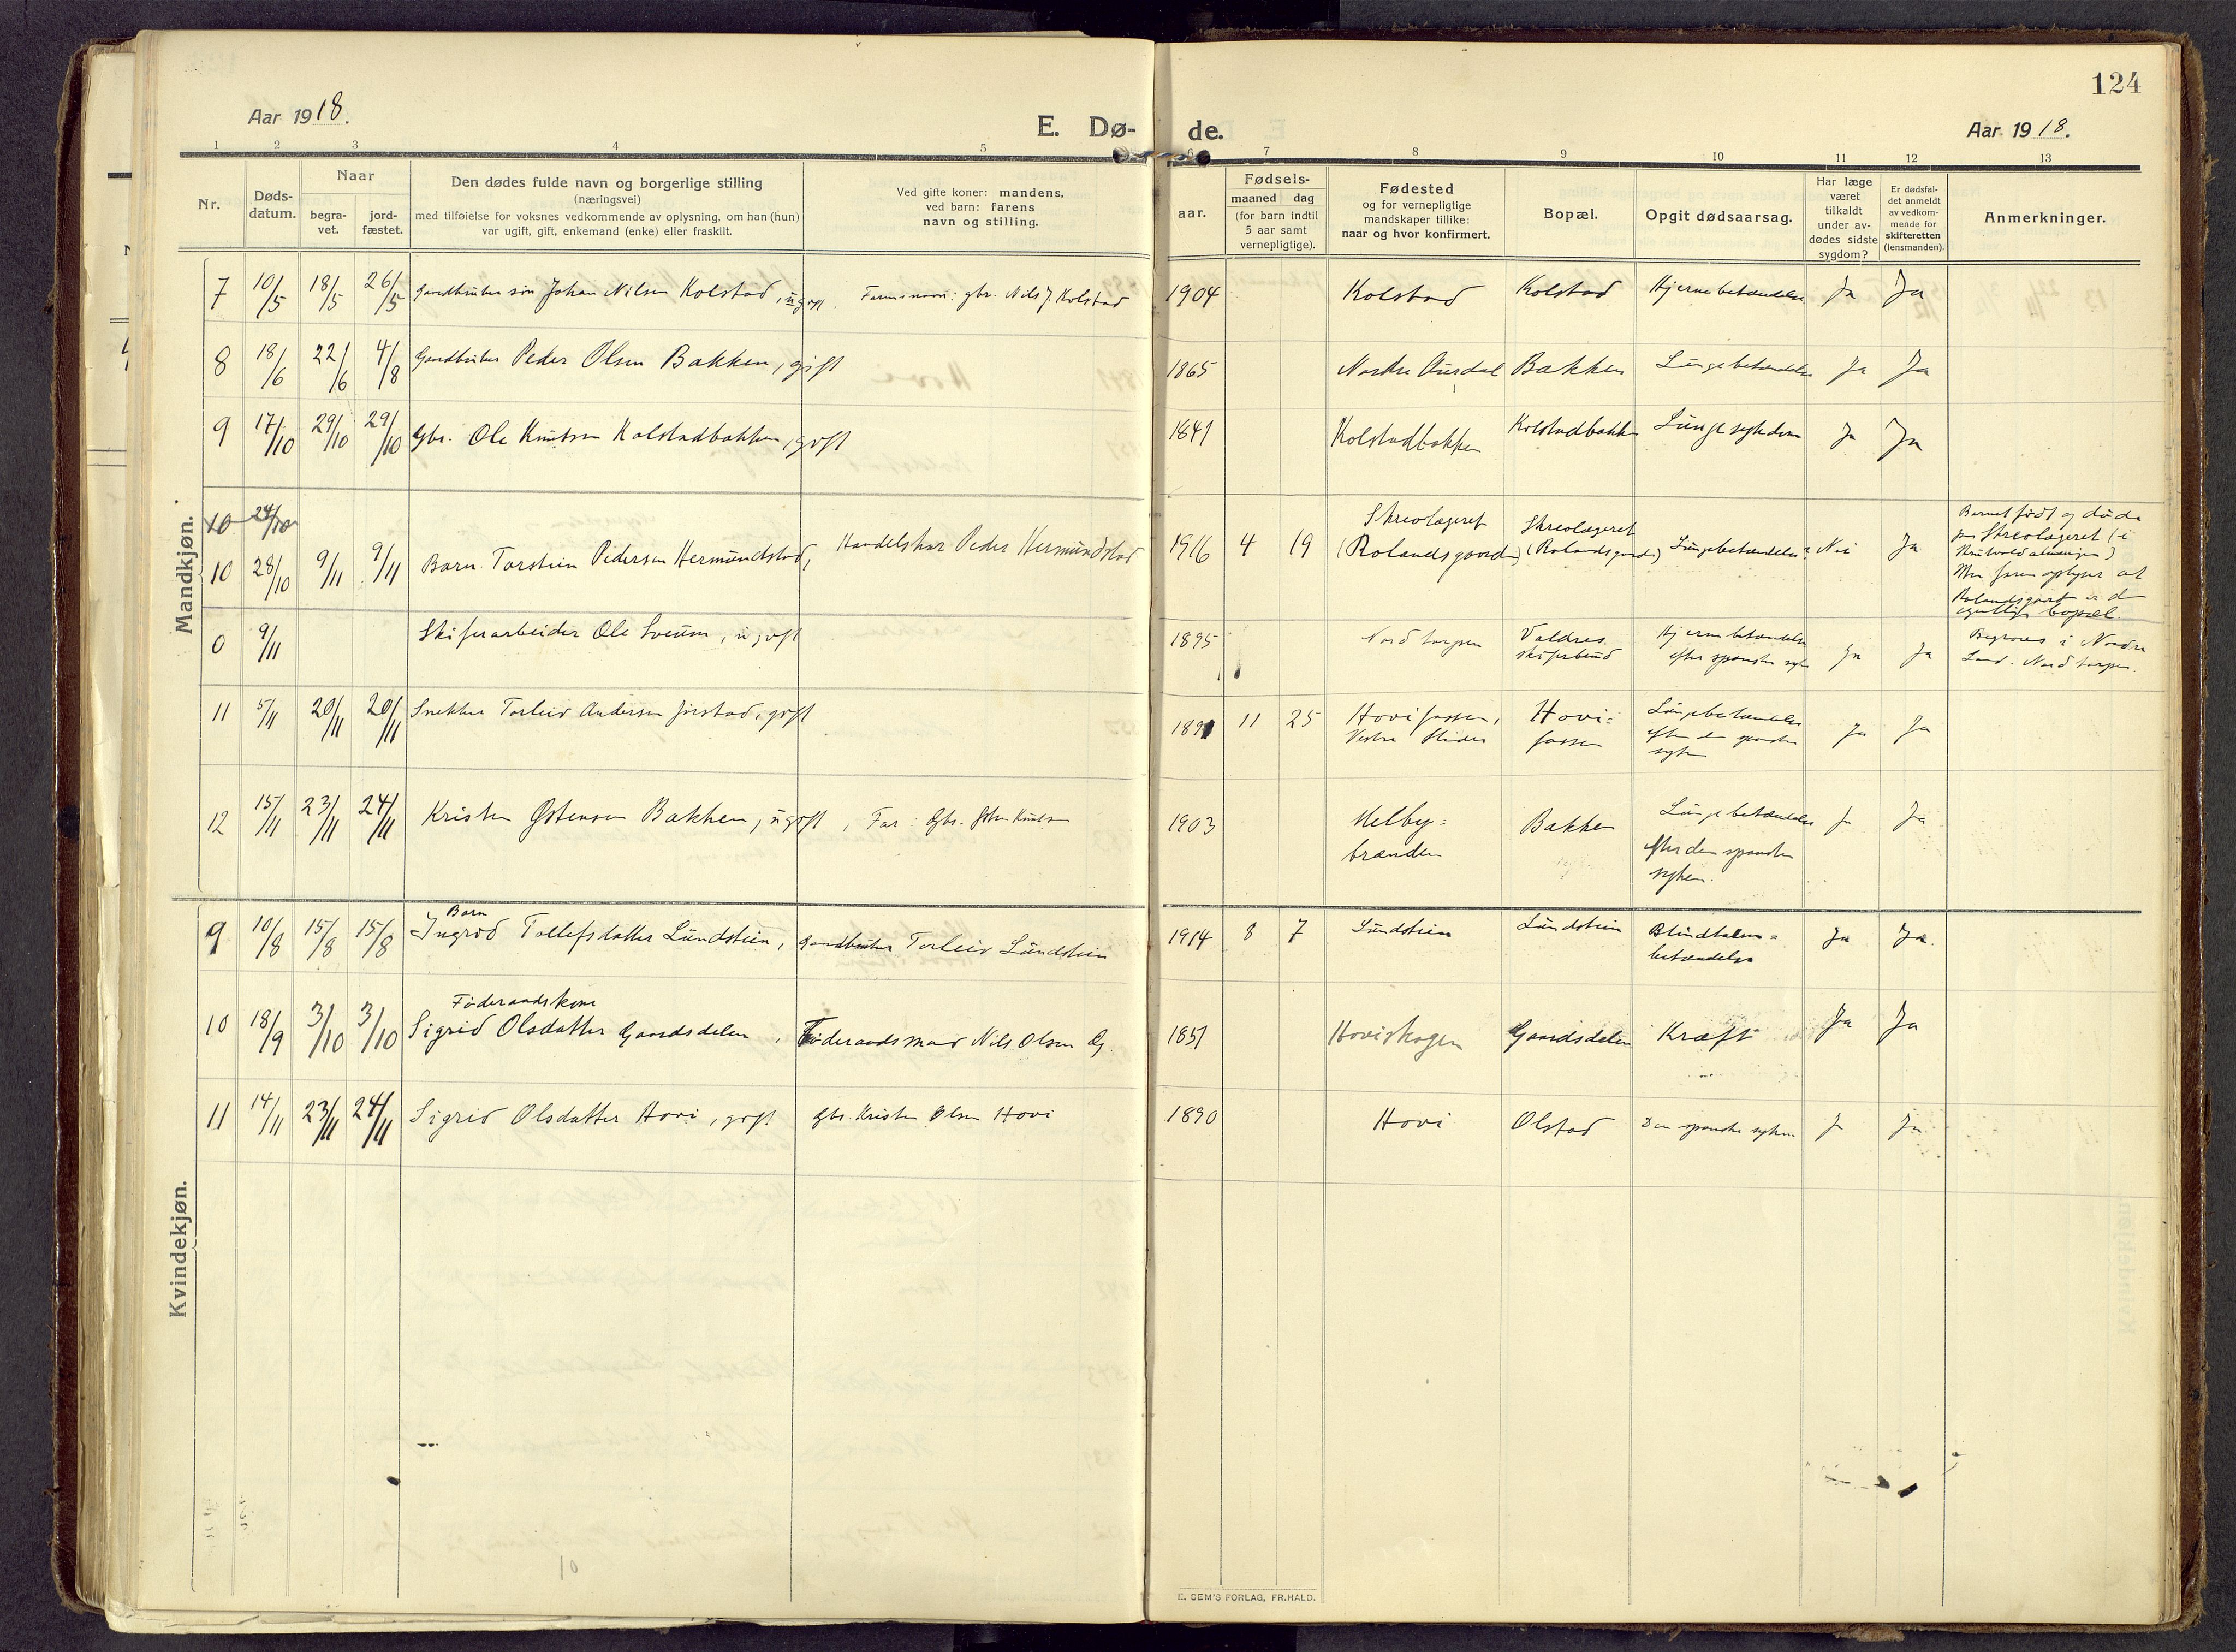 124
Aar 1918.
E. Dø- de.
Aar 1918.
1 2 3 4 5 6 7 8 9 10 11 12 13
Nr.
Døds-
datum.
Naar
begra-
vet.
jord-
fæstet.
Den dødes fulde navn og borgerlige stilling
(næringsvei)
med tilføielse for voksnes vedkommende av oplysning, om han (hun)
var ugift, gift, enkemand (enke) eller fraskilt.
Ved gifte koner: mandens,
ved barn: farens
navn og stilling.
aar.
Fødsels-
maaned dag
(for barn indtil
5 aar samt
vernepligtige).
Fødested
og for vernepligtige
mandskaper tillike:
naar og hvor konfirmert.
Bopæl.
Opgit dødsaarsag.
Har læge
været
tilkaldt
under av-
dødes sidste
sygdom?
Er dødsfal-
det anmeldt
av vedkom-
mende for
skifteretten
(lensmanden).
Anmerkninger.
Mandkjøn.
7 10/5 18/5 26/5 Gardbruker søn Johan Nilsen Kolstad, ugift. Farens navn: gbr. Nils J. Kolstad 1904 Kolstad Kolstad Hjernebetændelse Ja Ja
8 18/6 22/6 4/8 Gardbruker Peder Olsen Bakken, gift 1865 Nordre Aurdal Bakken Lungebetændelse Ja Ja
9 17/10 29/10 29/10 Gbr. Ole Knutsen Kolstadbakken, gift 1841 Kolstadbakken Kolstadbakken Lungesygdom Ja Ja
10 24/10
10 28/10 9/11 9/11 Barn Torstein Pedersen Hermundstad, Handelskar Peder Hermundstad 1916 4 19 Skreolægeret
(Rolandsgaard)
Skreolægeret
(Rolandsgaard)
Lungebetændelse? Nei Ja
Barnet født og døde
paa Skreolægeret (i
almenningen)
Men faren oplyser at
Rolandsgaard er d
egentlige bopæl.
0 9/11 Skiferarbeider Ole Sveum, ugift 1895 Nord torpen Valdres
skiferbrud
Hjernebetændelse
efter spanske syke
Ja Ja
Begraves i Nordre
Land. Nord torpen.
11 5/11 20/11 20/11 Snekker Torleiv Andersen Jørstad, gift 1891 11 25 Hovifossen,
Vestre Slidre
Hovi=
fossen
Lungebetændelse
efter den spanske
syken
Ja Ja
12 15/11 23/11 24/11 Kristen Østensen Bakken, ugift, Far: Gbr. Østen Knutsen 1903 Melby=
branden
Bakken
Lungebetændelse
efter den spanske
syken.
Ja Ja
Kvindekjøn.
9 10/8 15/8 15/8 Barn
Ingrid Tollefsdatter Lundstein, Gardbruker Torleiv Lundstein 1914 8 7 Lundstein Lundstein Blindtarm=
betændelse
Ja Ja.
10 18/9 3/10 3/10 Føderaadskone
Sigrid Olsdatter Gaardsdelen, Føderaadsmand Nils Olsen G. 1851 Hoviskogen Gaardsdelen Kræft Ja Ja
11 14/11 23/11 24/11 Sigrid Olsdatter Hovi, gift Gbr. Kristen Olsen Hovi 1890 Hovi Olstad Den spanske syken Ja Ja
10
E. SEM'S FORLAG, FR.HALD.